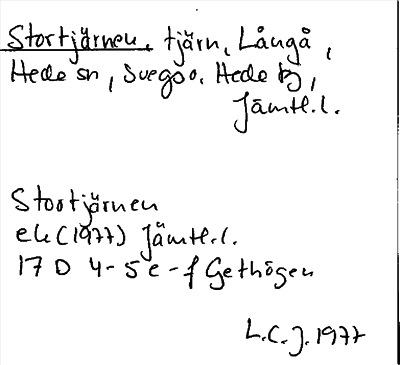 Stortjärnen, tjärn, Långå,
Hede sn, Svegs o. Hede tg,
Jämtl.l.
Stortjärnen
ek (1977) Jämtl.l.
17 D 4-5 e-f Gethögen
L.C.J. 1977